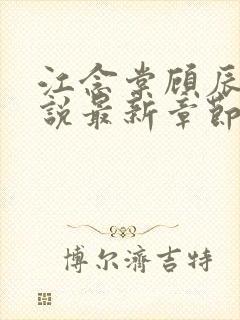 江念棠顾辰
說最新章節
博尔濟吉特